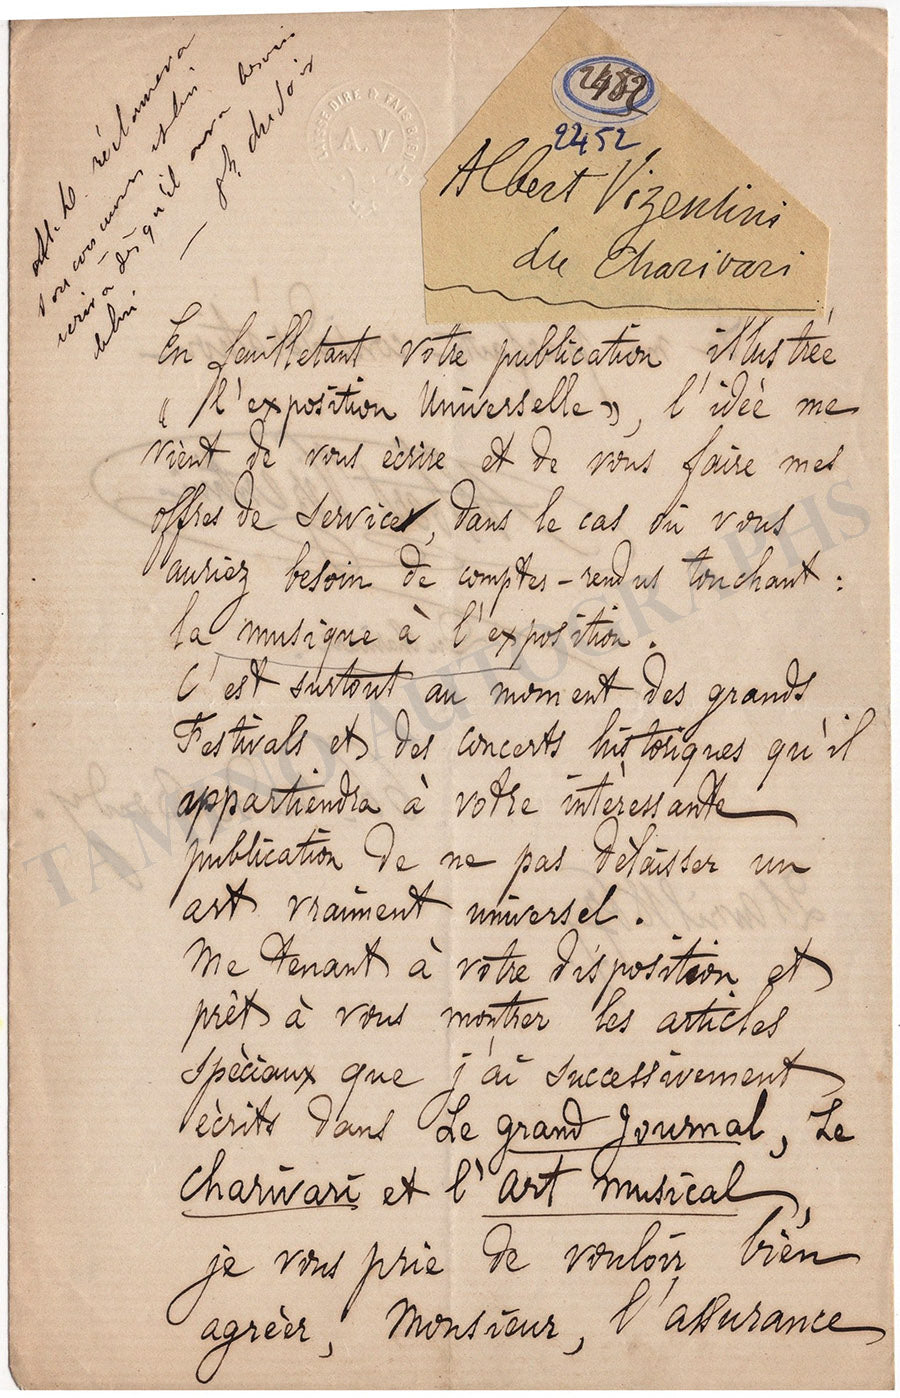 réclamera
son concours et lui
écrira dès qu'il aura besoin
de lui
BIEN DIRE & FAIS BIEN
A.V
2452
2452
Albert Vizentini
du Charivari
En feuilletant votre publication illustrée
"l'exposition Universelle", l'idée me
vient de vous écrire et de vous faire mes
offres de service, dans le cas où vous
auriez besoin de comptes-rendus touchant :
la musique à l'exposition.
C'est surtout au moment des grands
Festivals et des concerts historiques qu'il
appartiendra à votre intéressante
publication de ne pas délaisser un
art vraiment universel.
Me tenant à votre disposition et
prêt à vous montrer les articles
spéciaux que j'ai successivement
écrits dans Le grand Journal, Le
Charivari et l'art musical,
je vous prie de vouloir bien
agréer, Monsieur, l'assurance
TAMINO AUTOGRAPHS